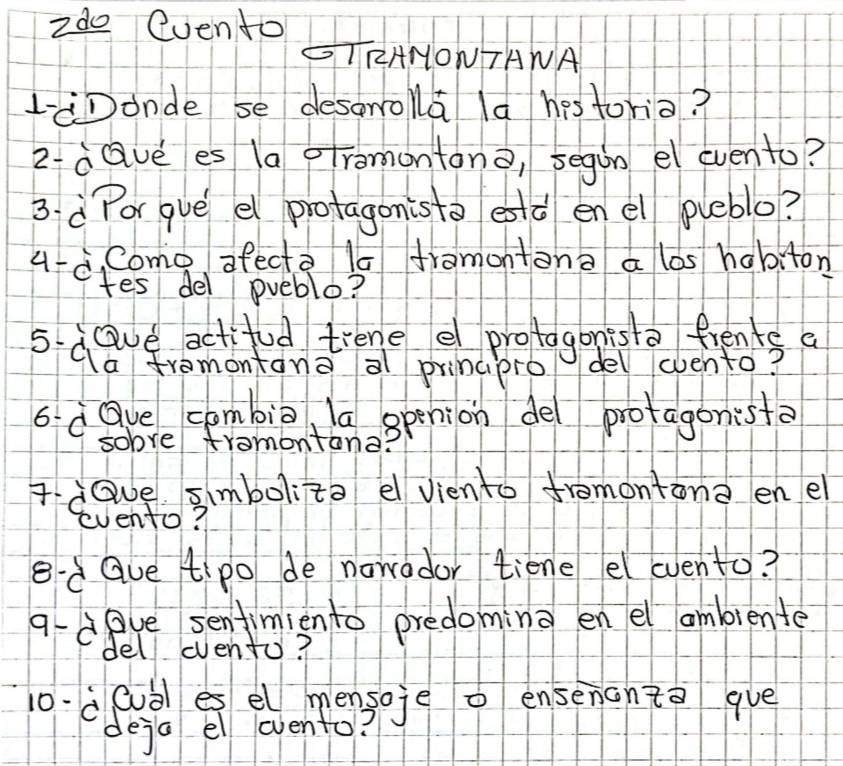 2do Cuento
TRAMONTANA
1-¿Dónde se desarrolla la historia?
2-¿Qué es la Tramontana, según el cuento?
3-¿Por qué el protagonista está en el pueblo?
4-¿Como afecta la tramontana a los habitan
tes del pueblo?
5-¿Qué actitud tiene el protagonista frente a
la tramontana al principio del cuento?
6-¿Que cambia la openión del protagonista
sobre tramontana?
7-¿Que simboliza el viento tramontana en el
cuento?
8-¿Que tipo de narrador tiene el cuento?
9-¿Que sentimiento predomina en el ambiente
del cuento?
10-¿Cuál es el mensaje o enseñanza que
deja el cuento?